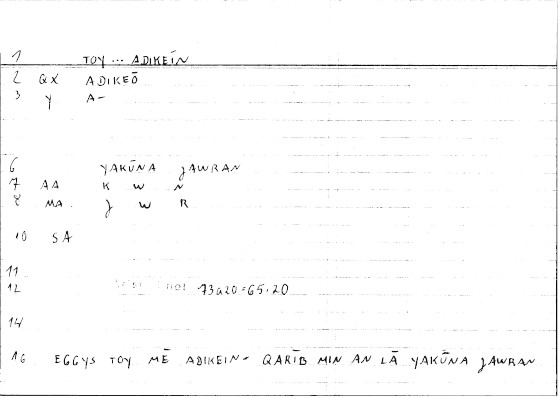 1 TOY ... ADIKEĪN
2 QX ADIKEŌ
3 Y A-
6 YAKŪNA JAWRAN
7 AA K W N
8 MA. J W R
10 SA
11
12 73a20=65.20
14
16 EGGYS TOY MĒ ADIKEIN- QARĪB MIN AN LĀ YAKŪNA JAWRAN